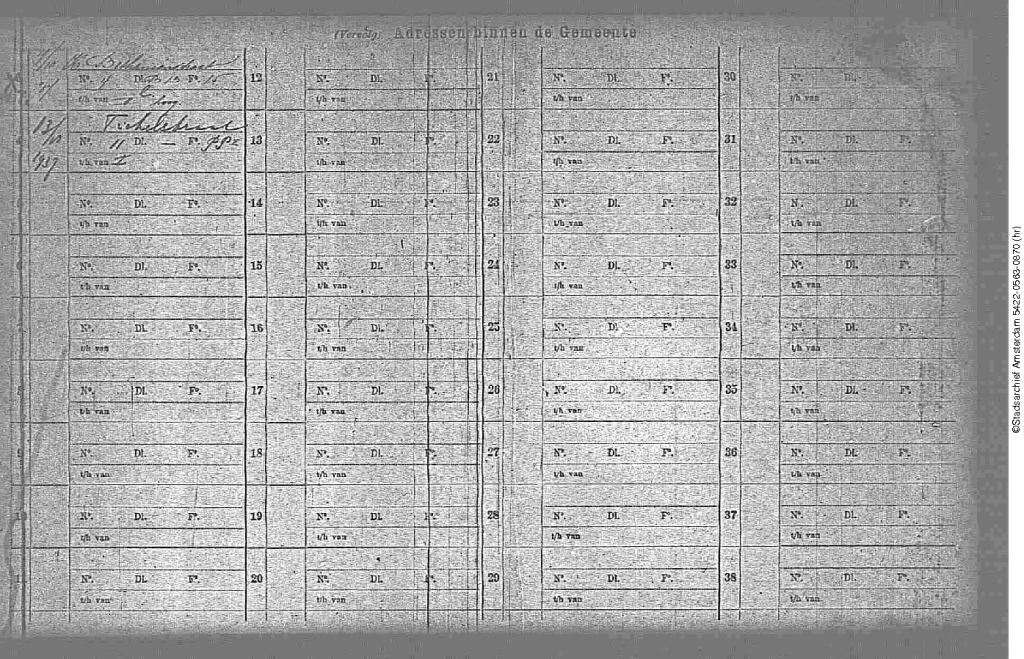 (Vervolg) Adressen binnen de Gemeente
Nº. 4 Dl. Fº.
t/h van
12 Nº. Dl. Fº.
t/h van
21 Nº. Dl. Fº.
t/h van
30 Nº. Dl. Fº.
t/h van
13/10 1937
Nº. 11 Dl. — Fº.
t/h van I
13 Nº. Dl. Fº.
t/h van
22 Nº. Dl. Fº.
t/h van
31 Nº. Dl. Fº.
t/h van
Nº. Dl. Fº.
t/h van
14 Nº. Dl. Fº.
t/h van
23 Nº. Dl. Fº.
t/h van
32 Nº. Dl. Fº.
t/h van
Nº. Dl. Fº.
t/h van
15 Nº. Dl. Fº.
t/h van
24 Nº. Dl. Fº.
t/h van
33 Nº. Dl. Fº.
t/h van
Nº. Dl. Fº.
t/h van
16 Nº. Dl. Fº.
t/h van
25 Nº. Dl. Fº.
t/h van
34 Nº. Dl. Fº.
t/h van
8 Nº. Dl. Fº.
t/h van
17 Nº. Dl. Fº.
t/h van
26 Nº. Dl. Fº.
t/h van
35 Nº. Dl. Fº.
t/h van
9 Nº. Dl. Fº.
t/h van
18 Nº. Dl. Fº.
t/h van
27 Nº. Dl. Fº.
t/h van
36 Nº. Dl. Fº.
t/h van
10 Nº. Dl. Fº.
t/h van
19 Nº. Dl. Fº.
t/h van
28 Nº. Dl. Fº.
t/h van
37 Nº. Dl. Fº.
t/h van
11 Nº. Dl. Fº.
t/h van
20 Nº. Dl. Fº.
t/h van
29 Nº. Dl. Fº.
t/h van
38 Nº. Dl. Fº.
t/h van
©Stadsarchief Amsterdam 5422-0563-0870 (hr)